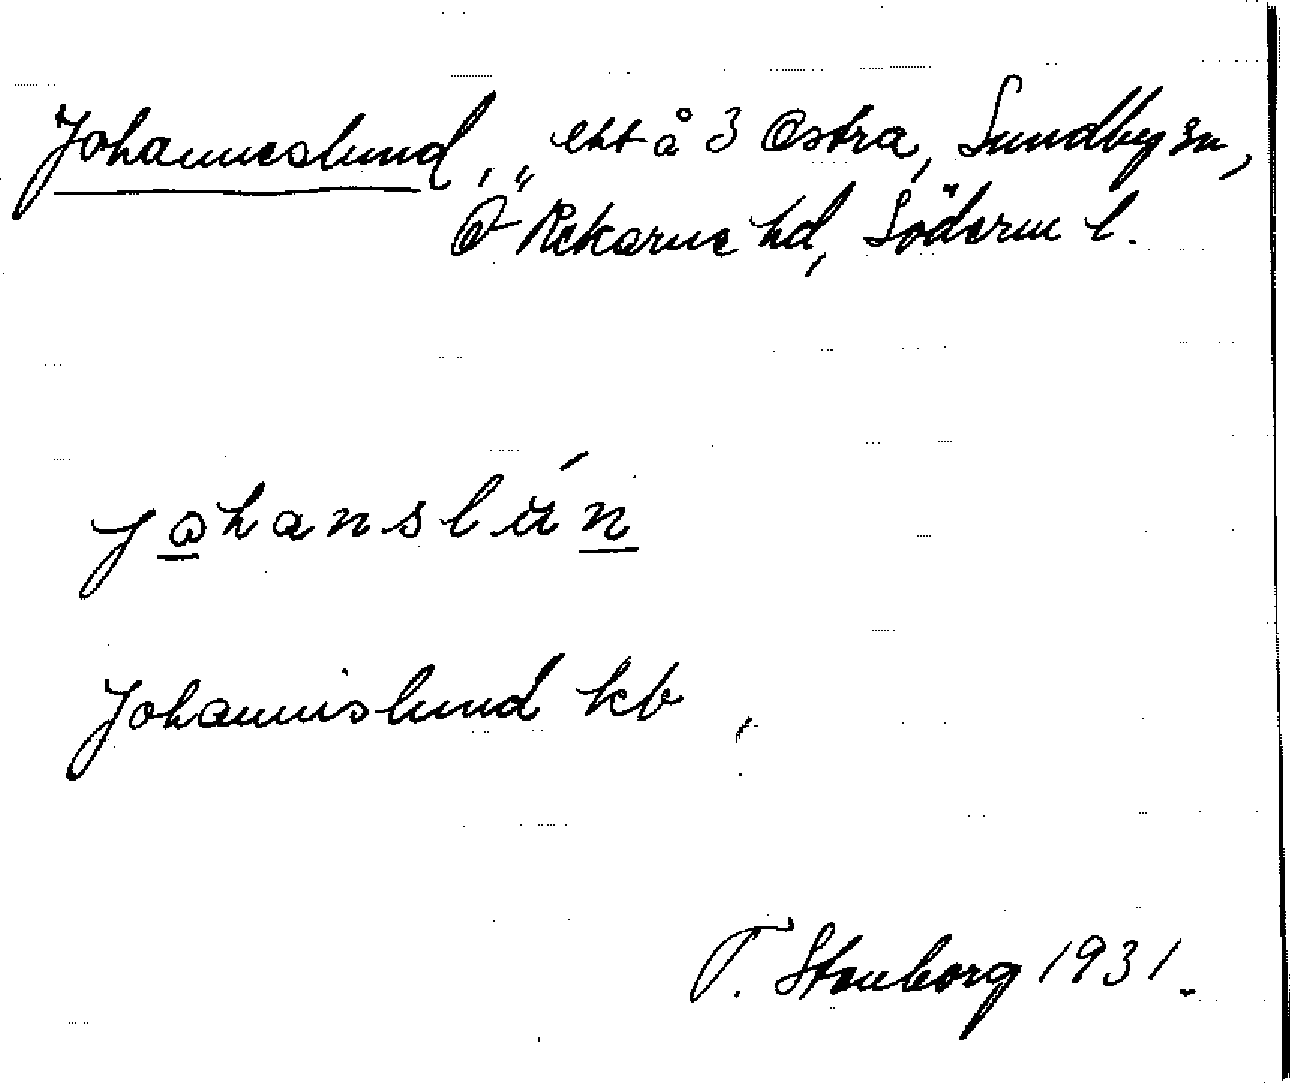 Johanneslund, ett å 3 Östra, Sundby sn,
Ö Rekarne hd, Söderm l.
johanslún
Johannislund kb
T. Stenborg 1931.